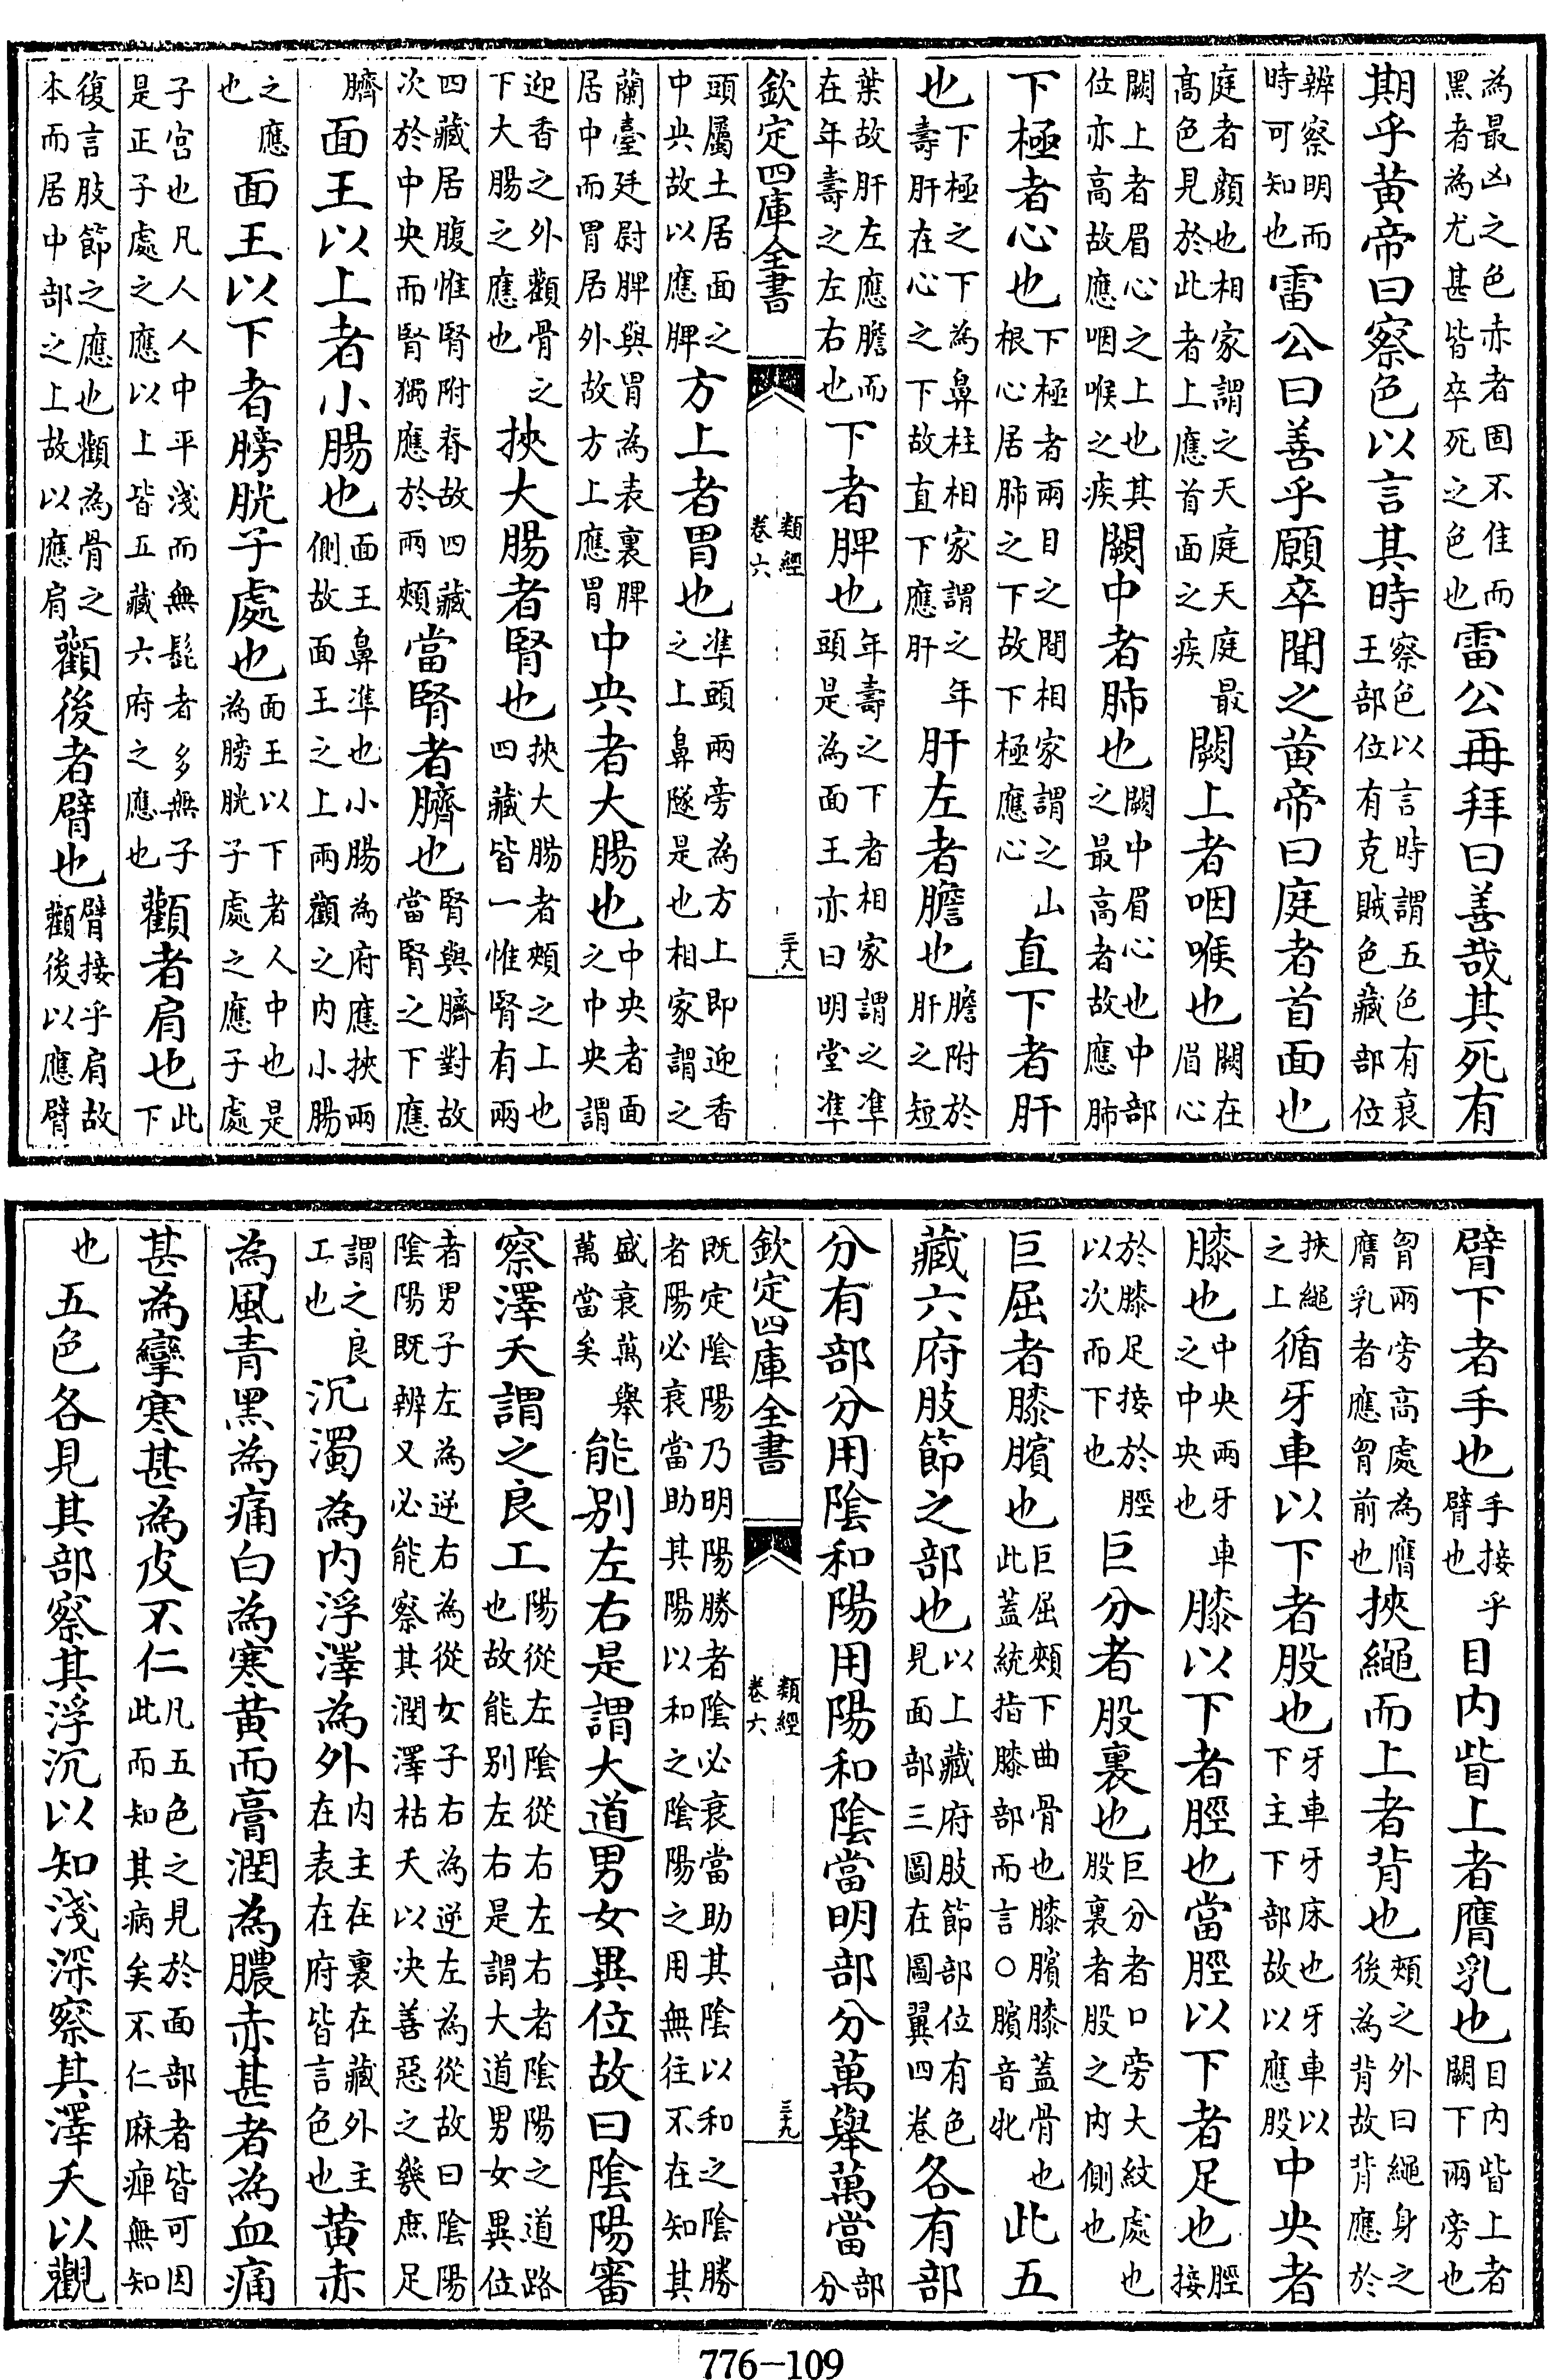 為最凶之色赤者固不佳而黑者為尤甚皆卒死之色也雷公再拜曰善哉其死有
期乎黄帝曰察色以言其時察色以言時謂五色有衰王部位有克賊色藏部位
辨察明而時可知也雷公曰善乎願卒聞之黄帝曰庭者首面也
庭者顔也相家謂之天庭天庭最髙色見於此者上應首面之疾闕上者咽喉也闕在眉心
闕上者眉心之上也其位亦高故應咽喉之疾闕中者肺也闕中眉心也中部之最高者故應肺
下極者心也下極者兩目之間相家謂之山根心居肺之下故下極應心直下者肝
也下極之下為鼻柱相家謂之年壽肝在心之下故直下應肝肝左者膽也膽附於肝之短
葉故肝左應膽而在年壽之左右也下者脾也年壽之下者相家謂之凖頭是為面王亦曰明堂凖
欽定四庫全書
類經
卷六
三十八
頭屬土居面之中央故以應脾方上者胃也凖頭兩旁為方上即迎香之上鼻隧是也相家謂之
蘭臺廷尉脾與胃為表裏脾居中而胃居外故方上應胃中央者大腸也中央者面之中央謂
迎香之外顴骨之下大腸之應也挾大腸者腎也挾大腸者頰之上也四藏皆一惟腎有兩
四藏居腹惟腎附脊故四藏次於中央而腎獨應於兩頰當腎者臍也腎與臍對故當腎之下應
臍面王以上者小腸也面王鼻凖也小腸為府應挾兩側故面王之上兩顴之内小腸
之應也面王以下者膀胱子處也面王以下者人中也是為膀胱子處之應子處
子宫也凡人人中平淺而無髭者多無子是正子處之應以上皆五藏六府之應也顴者肩也此下
復言肢節之應也顴為骨之本而居中部之上故以應肩顴後者臂也臂接乎肩故顴後以應臂
臂下者手也手接乎臂也目内眥上者膺乳也目内眥上者闕下兩旁也
胷兩旁高處為膺膺乳者應胷前也挾繩而上者背也頰之外曰繩身之後為背故背應於
挾繩之上循牙車以下者股也牙車牙床也牙車以下主下部故以應股中央者
膝也中央兩牙車之中央也膝以下者脛也當脛以下者足也脛接
於膝足接於脛以次而下也巨分者股裏也巨分者口旁大紋處也股裏者股之内側也
巨屈者膝臏也巨屈頰下曲骨也膝臏膝蓋骨也此蓋統指膝部而言○臏音牝此五
藏六府肢節之部也以上藏府肢節部位有色見面部三圖在圖翼四卷各有部
分有部分用陰和陽用陽和陰當明部分萬舉萬當部分
欽定四庫全書
類經
卷六
三十九
既定陰陽乃明陽勝者陰必衰當助其陰以和之陰勝者陽必衰當助其陽以和之陰陽之用無往不在知其
盛衰萬舉萬當矣能别左右是謂大道男女異位故曰陰陽審
察澤夭謂之良工陽從左陰從右左右者陰陽之道路也故能别左右是謂大道男女異位
者男子左為逆右為從女子右為逆左為從故曰陰陽陰陽既辨又必能察其潤澤枯夭以决善惡之幾庶足
謂之良工也沉濁為内浮澤為外内主在裏在藏外主在表在府皆言色也黄赤
為風青黑為痛白為寒黄而膏潤為膿赤甚者為血痛
甚為攣寒甚為皮不仁凡五色之見於面部者皆可因此而知其病矣不仁麻痺無知
也五色各見其部察其浮沉以知淺深察其澤夭以觀
776-109